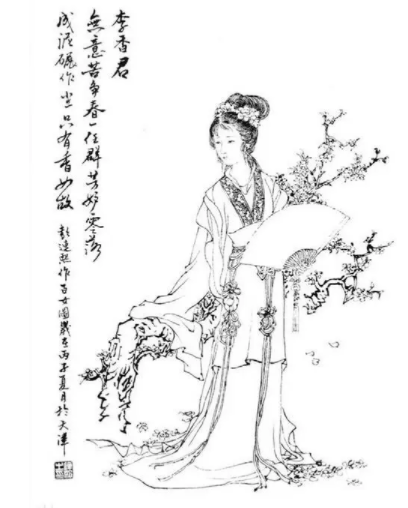 李香君
無意苦爭春一任群芳妒零落
成泥碾作尘只有香如故
彭連熙作百女圖歲在丙子夏月於天津